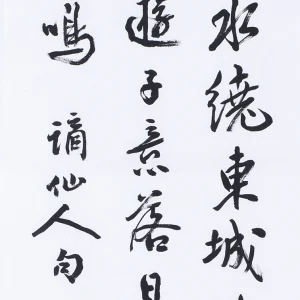 水繞東城
遊子意落日
鳴
謫仙人句